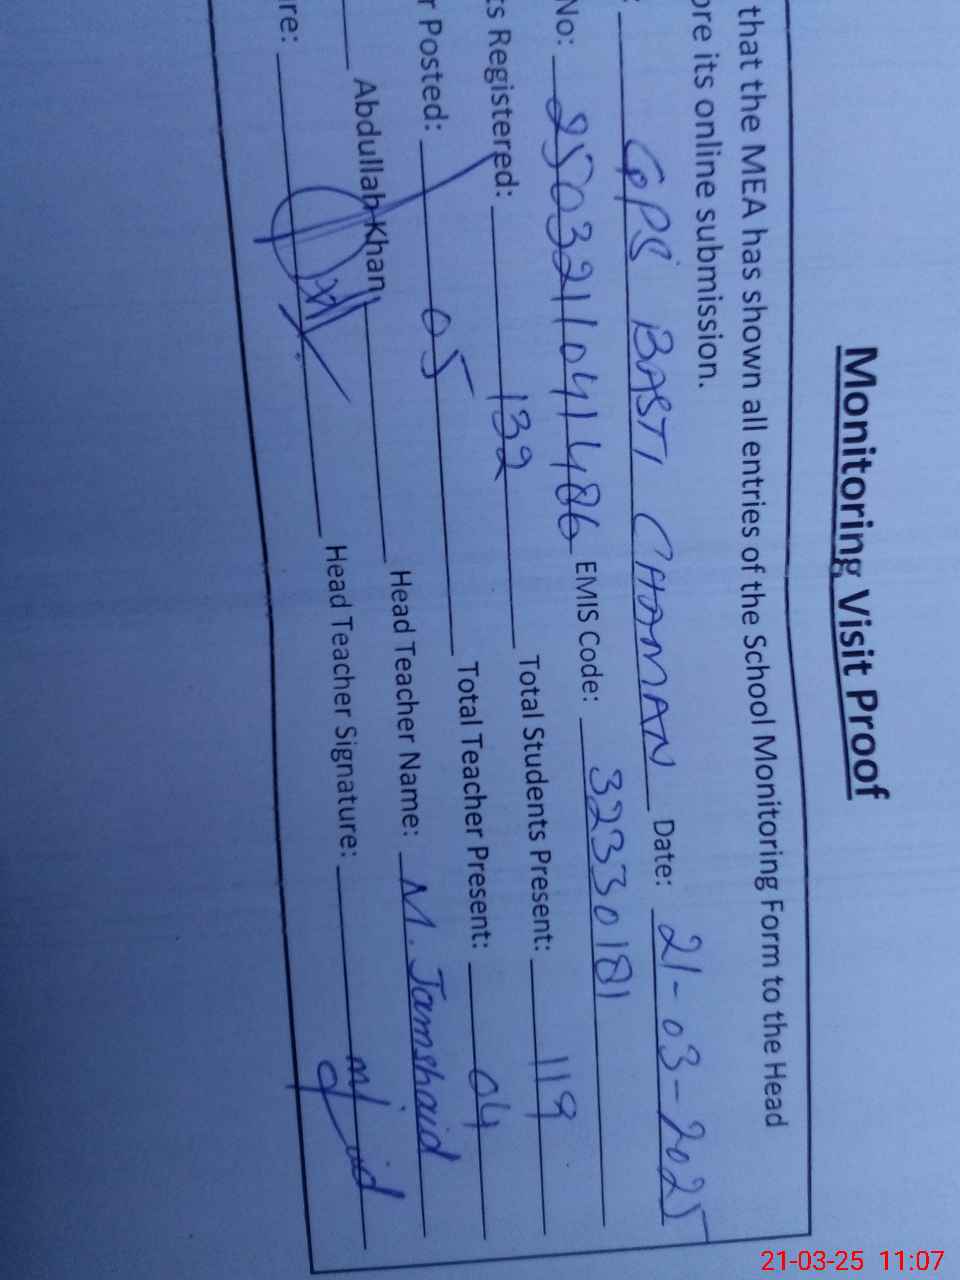 Monitoring Visit Proof
that the MEA has shown all entries of the School Monitoring Form to the Head
ore its online submission.
: GPS BASTI CHAMAN Date: 21-03-2025
No: 2503211041486 EMIS Code: 32330181
ts Registered: 132 Total Students Present: 119
r Posted: 05 Total Teacher Present: 04
Abdullah Khan Head Teacher Name: M. Jamshaid
re: Head Teacher Signature:
21-03-25 11:07